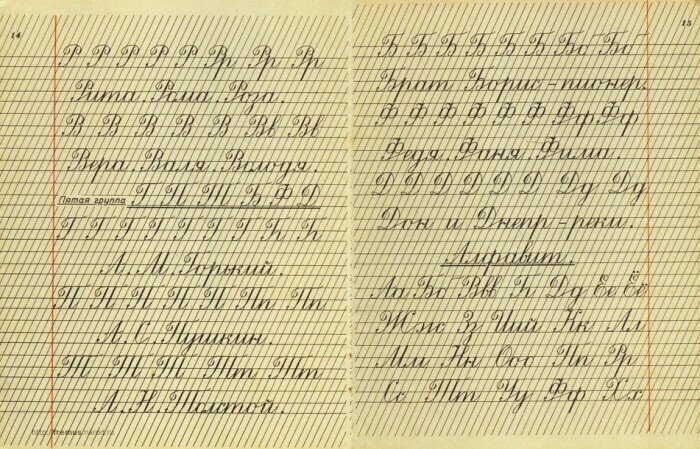 14
Р Р Р Р Р Р Рр Рр Рр
Рита. Рома. Роза.
В В В В В В Вв Вв
Вера. Валя. Володя.
Пятая группа Г П Т Б Ф Д
Г Г Г Г Г Г Г Гг Гг
А. М. Горький.
П П П П П П Пп Пп
А. С. Пушкин.
Т Т Т Т Тт Тт Тт
Л. Н. Толстой.
http://fremus.narod.ru
15
Б Б Б Б Б Б Бб Бб
Брат Борис - пионер.
Ф Ф Ф Ф Ф Ф Фф Фф
Федя. Фаня. Фима.
Д Д Д Д Д Д Дд Дд
Дон и Днепр - реки.
Алфавит.
Аа Бб Вв Гг Дд Ее Ёё
Жж Зз Ии й Кк Лл
Мм Нн Оо Пп Рр
Сс Тт Уу Фф Хх